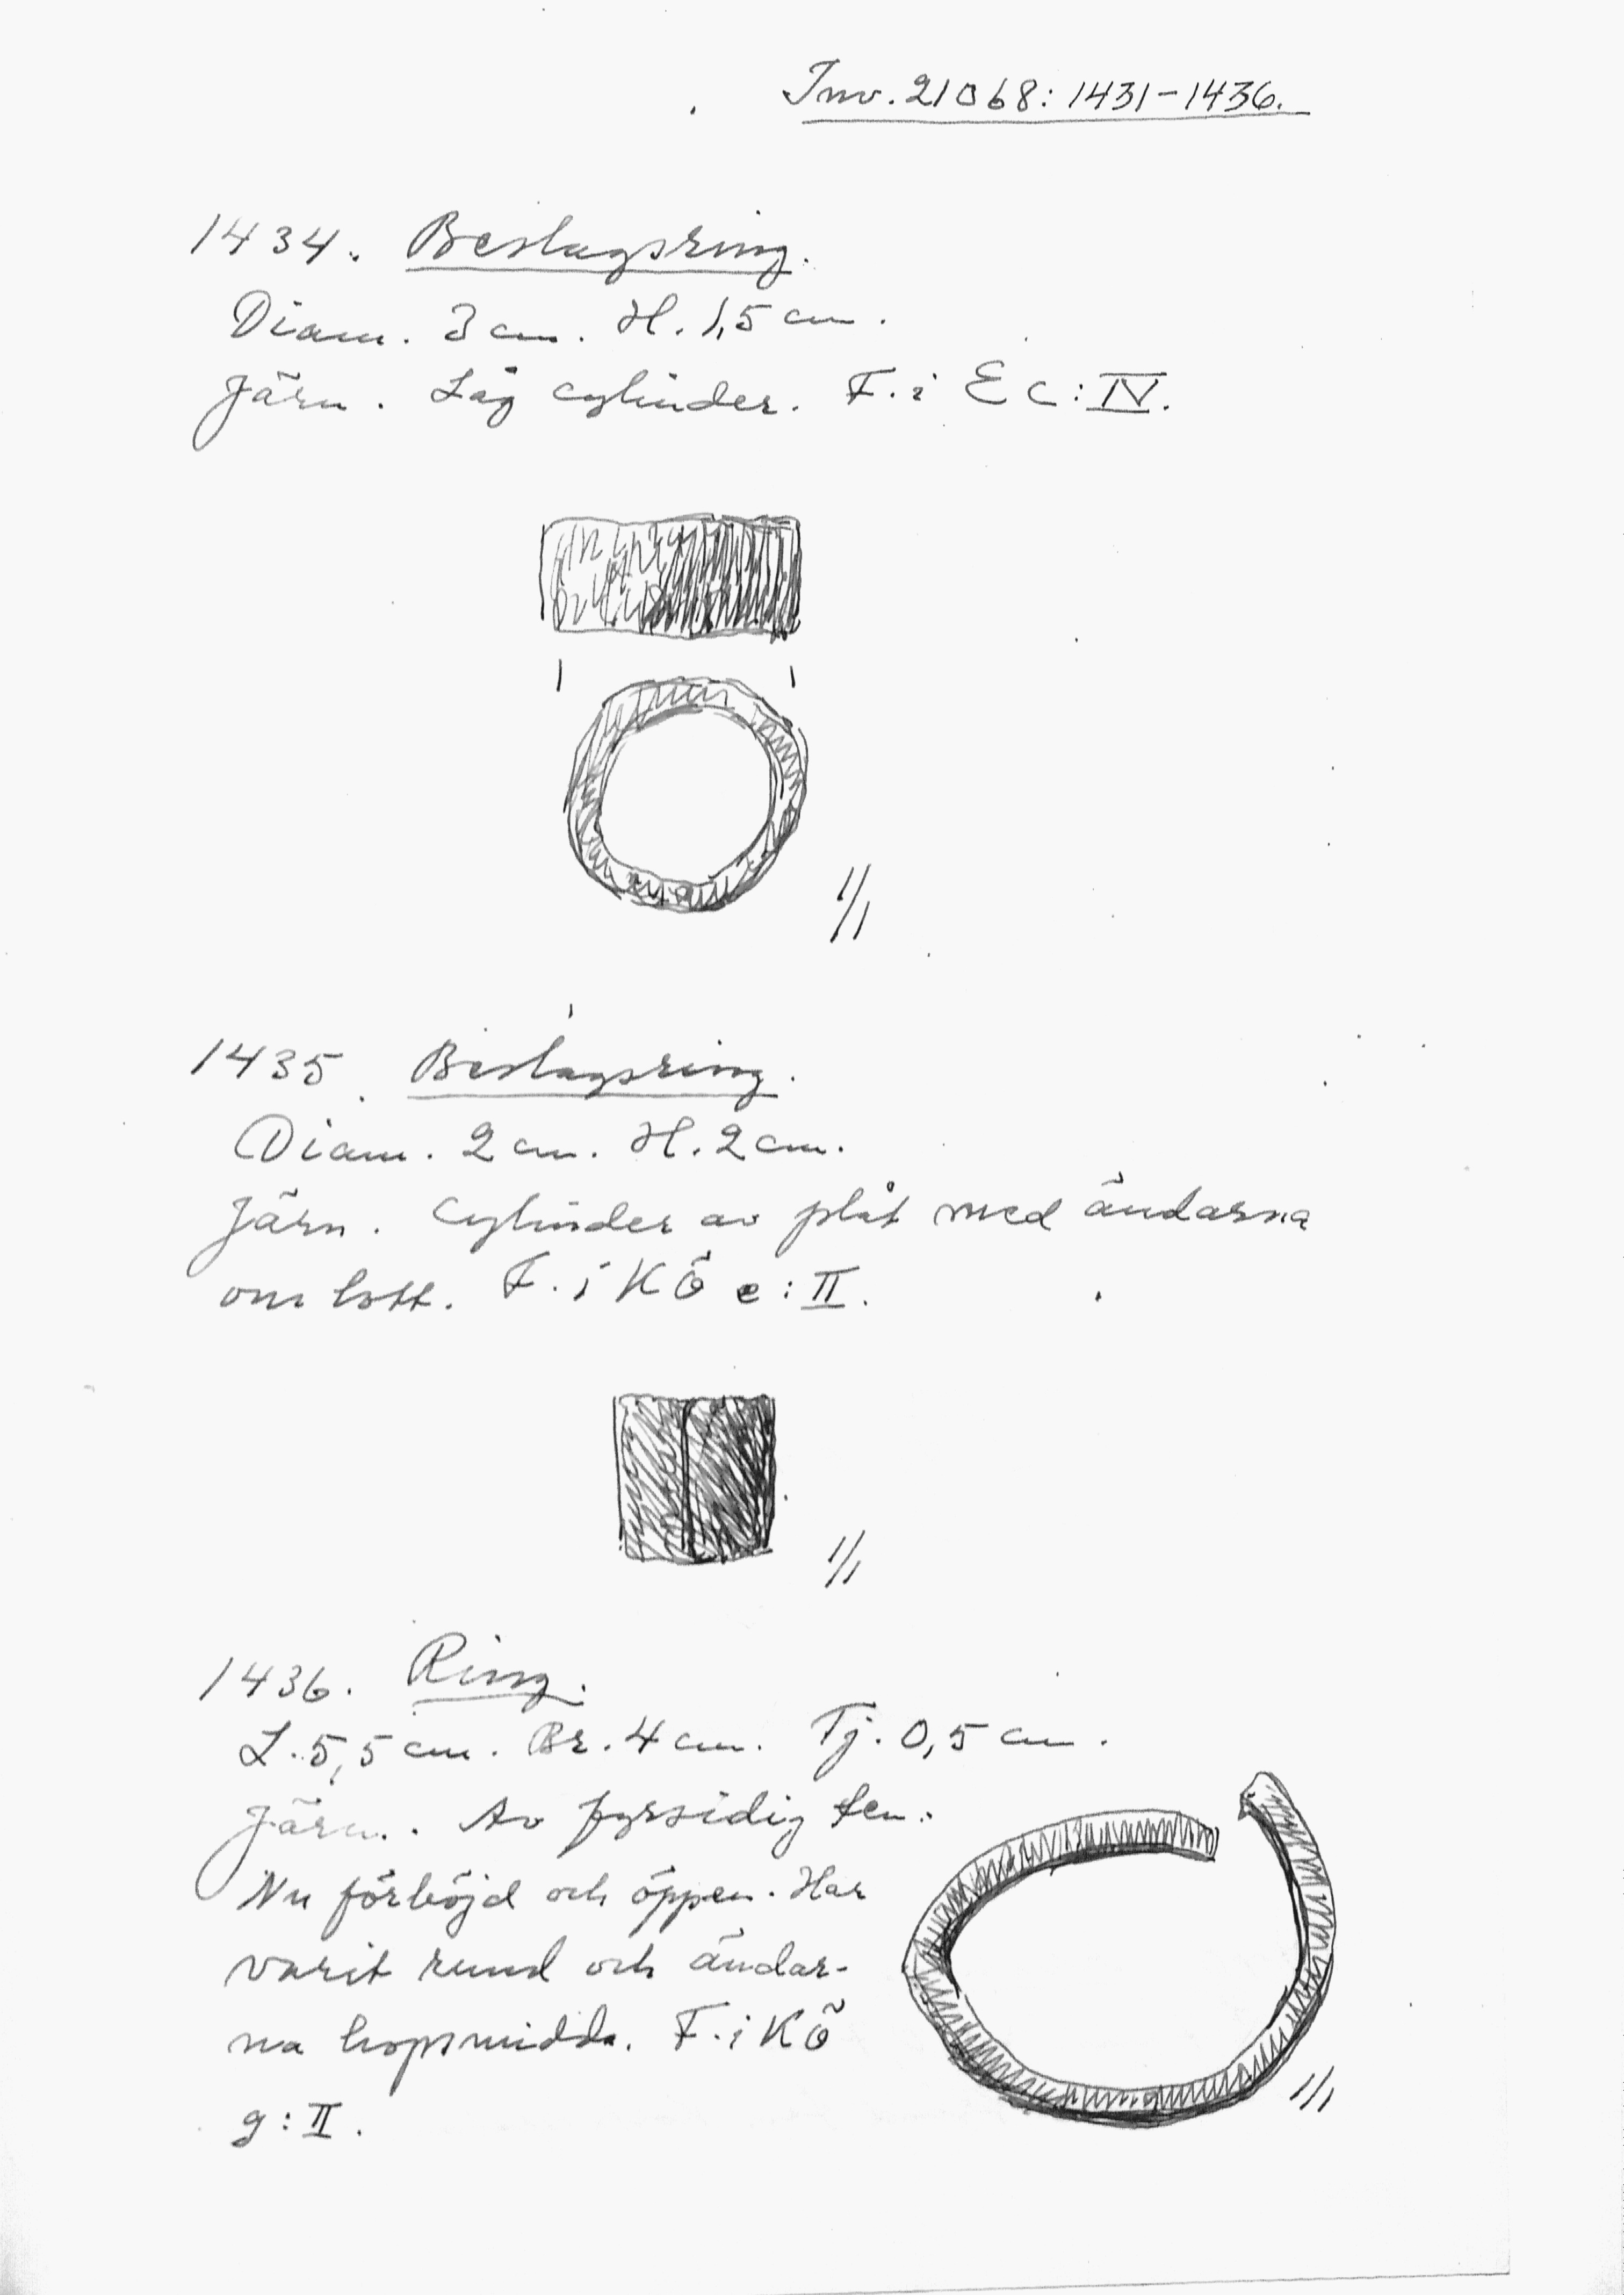 Inv. 21068: 1431-1436.
1434. Beslagsring.
Diam. 3 cm. H. 1,5 cm.
Järn. Låg cylinder. F. i E c: IV.
1/1
1435. Beslagsring.
Diam. 2 cm. H. 2 cm.
Järn. Cylinder av plåt med ändarna
om lott. F. i KÖ e: II.
1/1
1436. Ring.
L. 5,5 cm. Br. 4 cm. Tj. 0,5 cm.
Järn. Av fyrsidig ten.
Nu förböjd och öppen. Har
varit rund och ändar-
na hopsmidda. F. i KÖ
g: II.
1/1